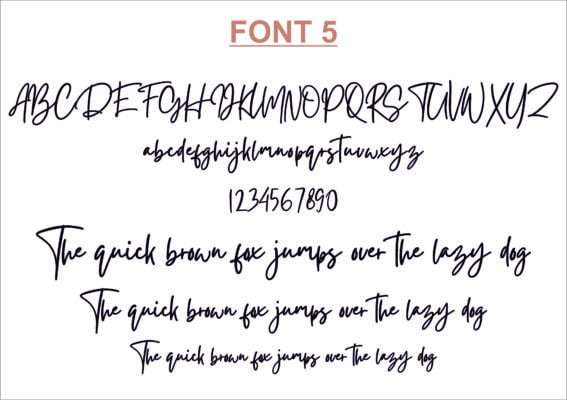 FONT 5
ABCDEFGHIJKLMNOPQRSTUVWXYZ
abcdefghijklmnopqrstuvwxyz
1234567890
The quick brown fox jumps over the lazy dog
The quick brown fox jumps over the lazy dog
The quick brown fox jumps over the lazy dog